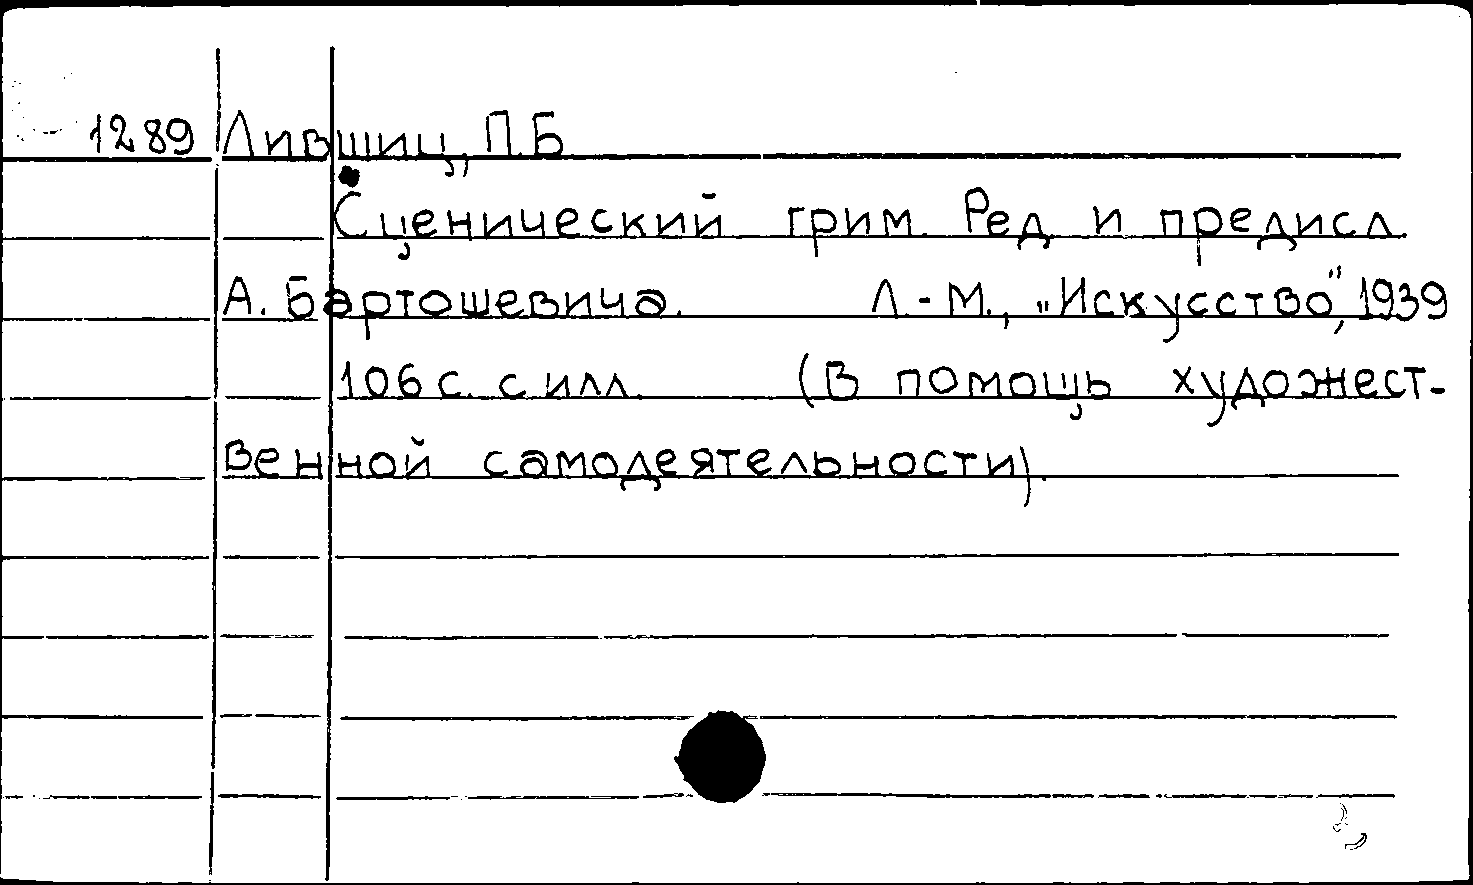 1289 Лившиц, П.Б
Сценический грим. Ред и предисл.
А. Бартошевича. Л.-М., „Искусство", 1939
106 с. с илл. (В помощь художест-
венной самодеятельности).